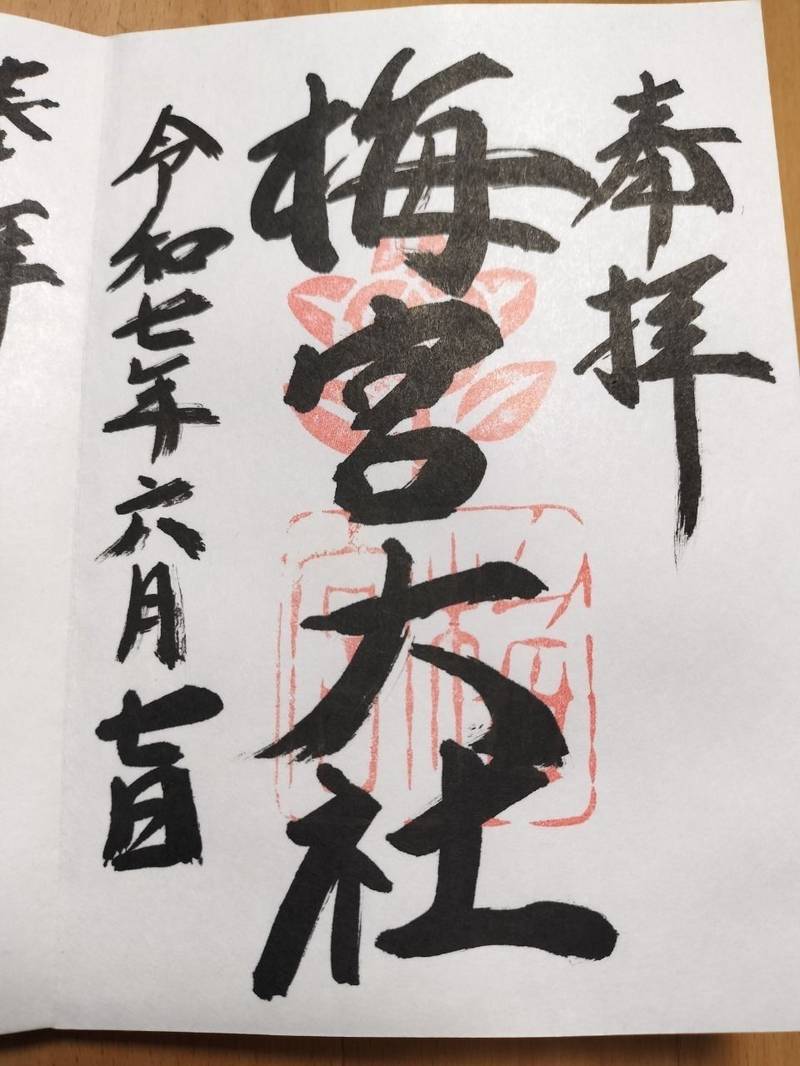 奉拝
梅宮大社
令和七年六月七日
奉拝